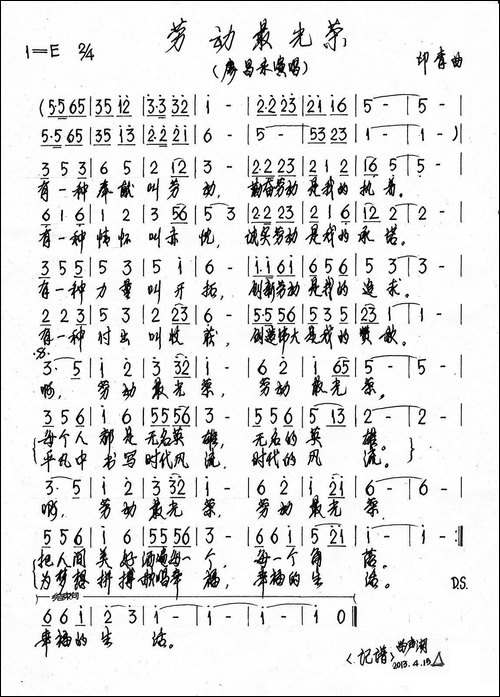 劳动最光荣
1=E 2/4
(廖昌永演唱)
印青曲
(5·5 65 | 35 12 | 3·3 32 | 1 - | 2·2 23 | 21 16 | 5 - | 5 - |
5·5 65 | 35 13 | 2·2 21 | 6 - | 5 - | 53 23 | 1 - | 1 - )|
3 5 3 | 6 5 | 2 12 | 3 - | 2·2 23 | 2 1 2 | 16 5 | 5 - |
有一种奉献叫劳动, 勤奋劳动是我的执着。
6 1 6 | 1 2 | 3 56 | 5 3 | 2·2 23 | 2 1 6 | 12 2 | 2 - |
有一种情怀叫赤忱, 诚实劳动是我的承诺。
3 5 5 | 5 3 | 5 1 | 6 - | 1·1 61 | 6 5 6 | 5 3 | 3 - |
有一种力量叫开拓, 创新劳动是我的追求。
2 2 3 | 5 3 | 5 56 | 6 - | 5·5 56 | 5 3 5 | 23 1 | 1 - |
有一种付出叫收获, 创造伟大是我的赞歌。
3· 5 | 1 2 | 3 32 | 1 - | 6 2 | 1 65 | 5 - | 5 - |
啊, 劳动最光荣, 劳动最光荣,
3 5 6 | 1 6 | 55 56 | 3 - | 5 5 6 | 5 13 | 2 - | 2 - |
每个人都是无名英雄, 无名的英雄。
平凡中书写时代风流, 时代的风流。
3· 5 | 1 2 | 3 32 | 1 - | 6 2 | 1 21 | 6 - | 6 - |
啊, 劳动最光荣, 劳动最光荣
5 5 6 | 1 6 | 55 56 | 3 - | 6 6 1 | 5 21 | 1 - | 1 - :‖
把人间美好洒遍每一个, 每一个角落。
为梦想拼搏歌唱幸福, 幸福的生活。
D.S.
结束句
6 6 1 | 2 3 | 1 - | 1 - | 1 - | 1 0 ‖
幸福的生活。
(记谱)
2013.4.15